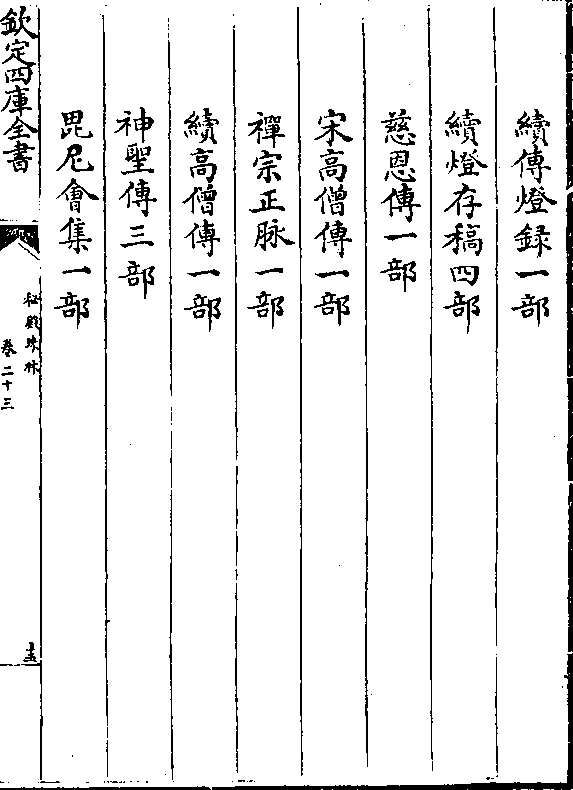 續傳燈録一部
續燈存稿四部
慈恩傳一部
宋高僧傳一部
禪宗正脉一部
續高僧傳一部
神聖傳三部
毘尼會集一部
欽定四庫全書
秘殿珠林
卷二十三
十五